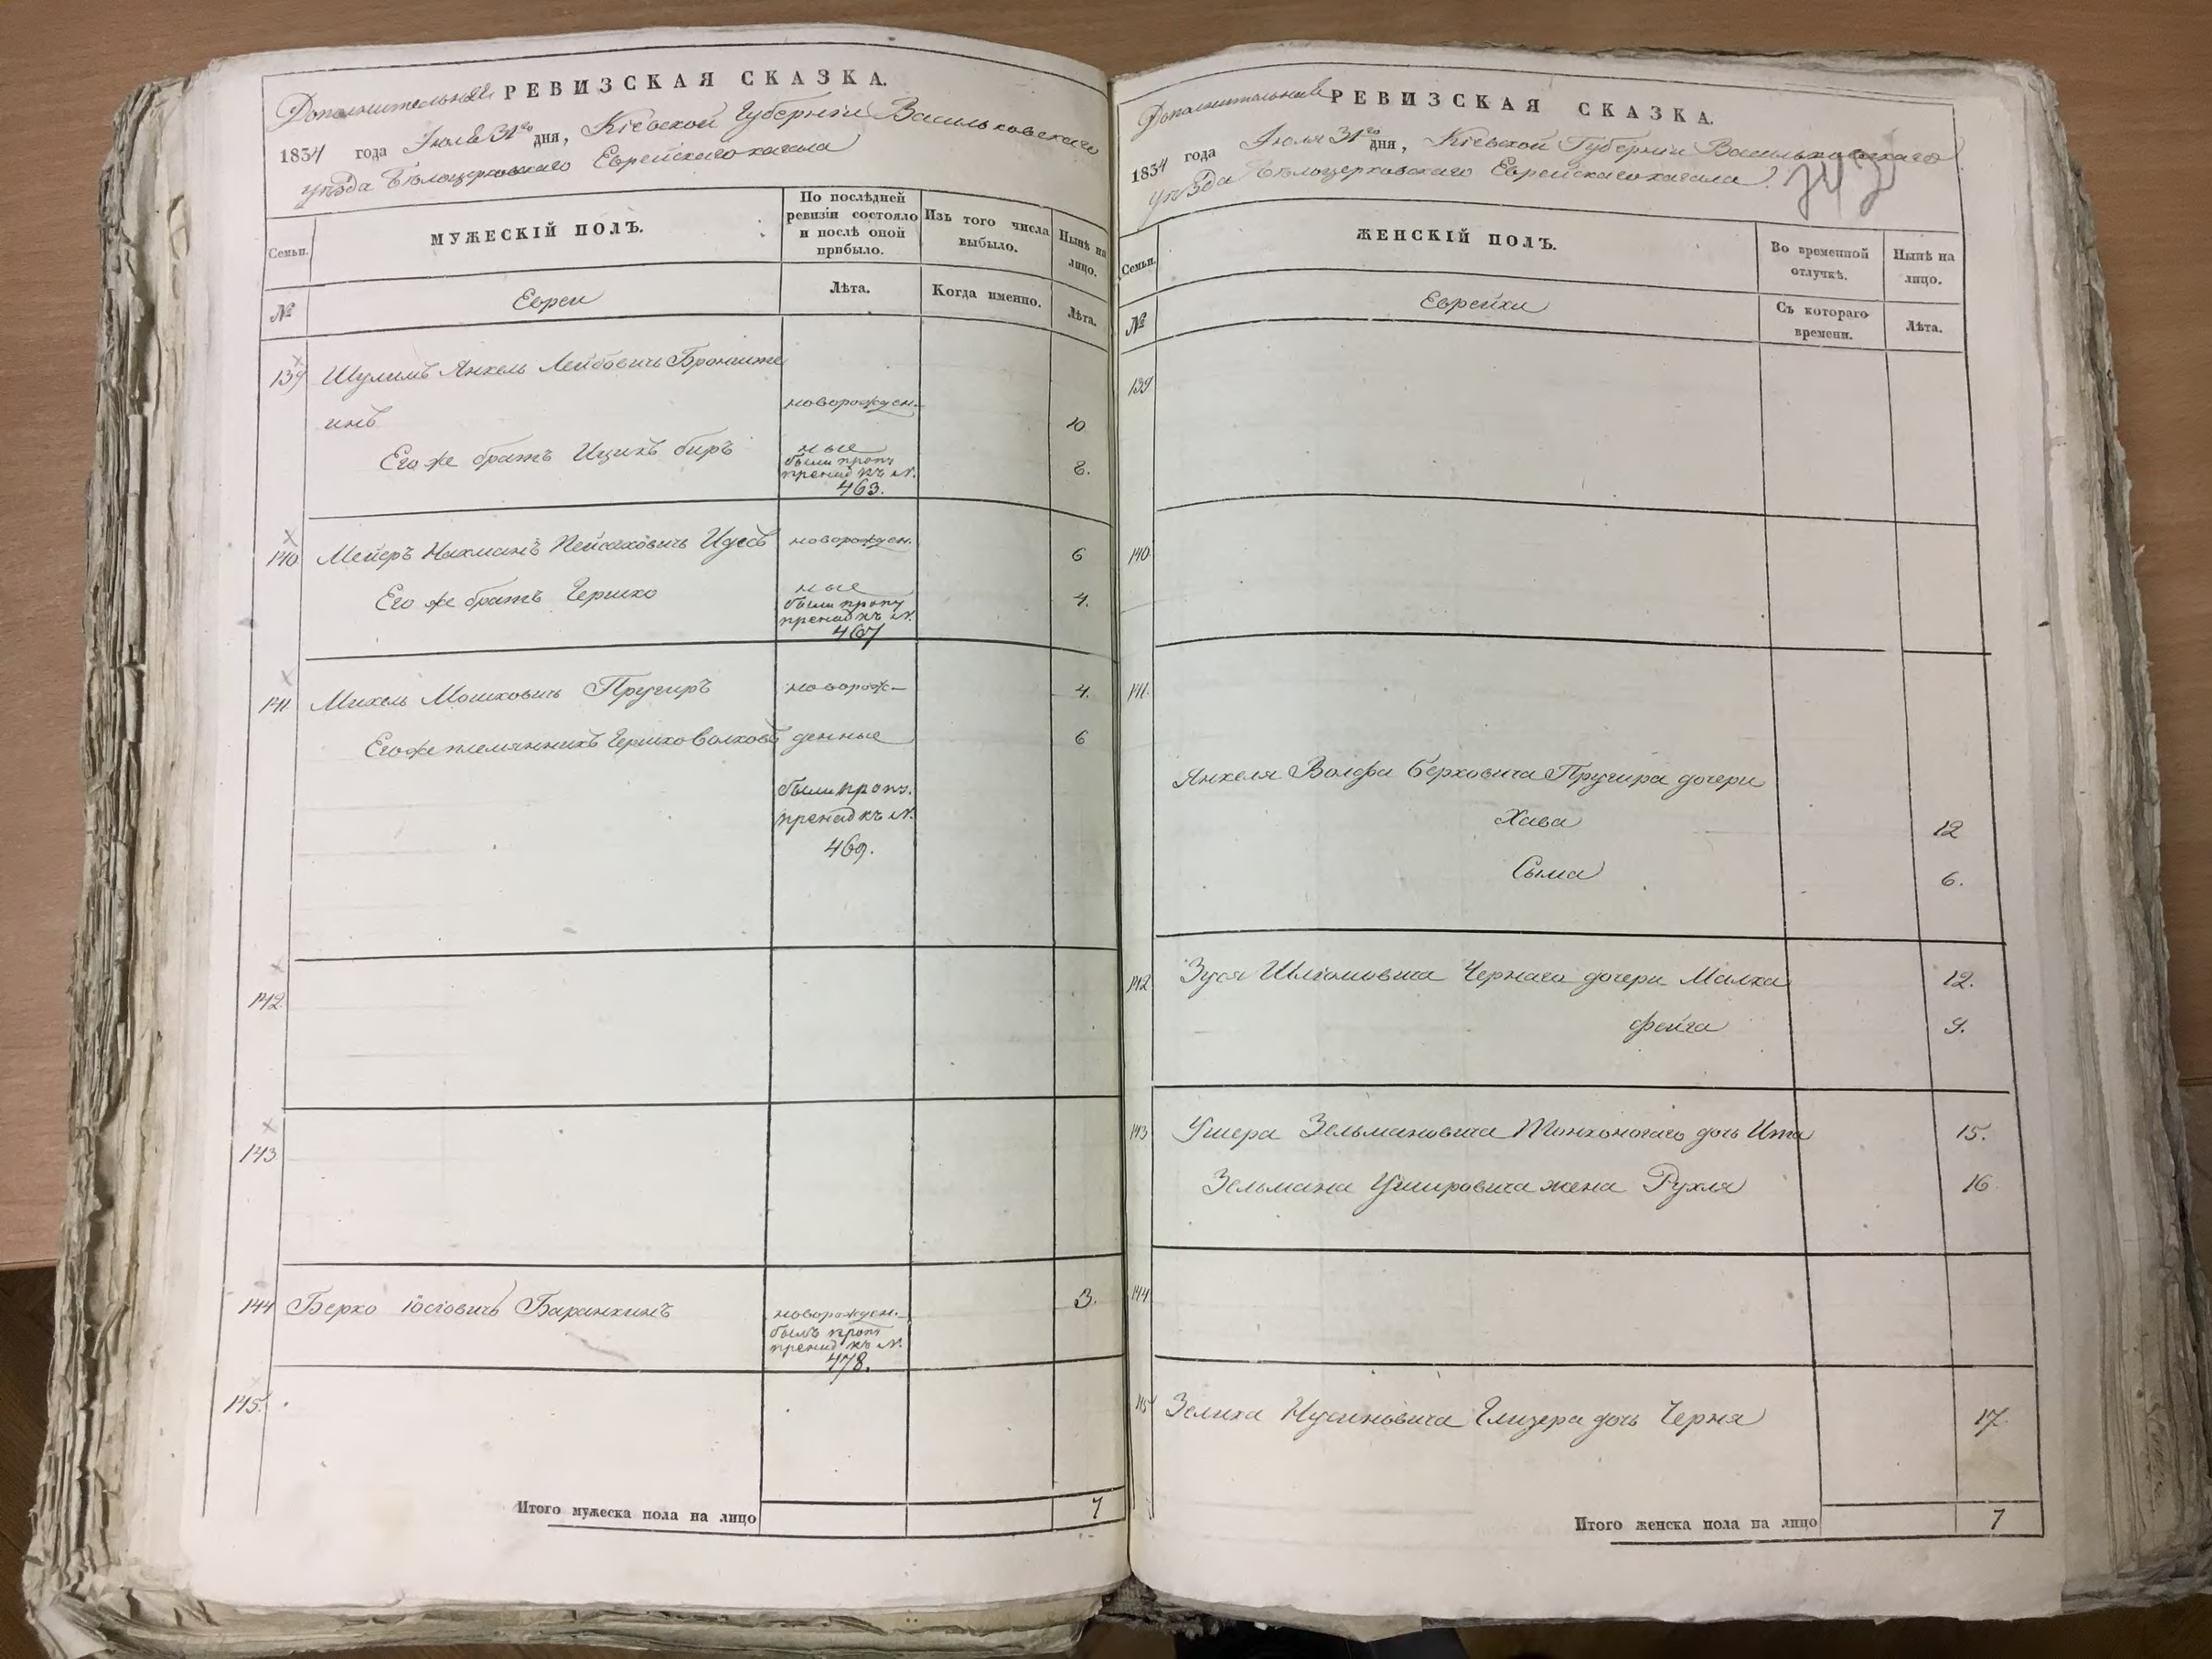 Дополнительная РЕВИЗСКАЯ СКАЗКА.
1834 года Іюля 31го дня, Кіевской Губерніи Васильковскаго
уѣзда Бѣлоцерковскаго Еврейскаго кагала
Семьи.
МУЖЕСКІЙ ПОЛЪ.
По послѣдней
ревизіи состояло
и послѣ оной
прибыло.
Изъ того числа
выбыло.
Нынѣ на
лицо.
№
Евреи
Лѣта.
Когда именно.
Лѣта.
139 Шулимъ Янкель Лейбовичь Бронште
новорожден-
инъ 10
Его же братъ Ицикъ беръ ные 8.
были проп
принад къ N.
463.
140 Мейеръ Нахманъ Пейсаховичь Идесъ новорожден. 6
Его же братъ Гершко ные 4.
были пропу
принад къ N.
467
141 Михель Мошковичь Пругиръ новорож- 4.
Его же племянникъ Гершко Волковъ денные 6
были проп.
принад къ N.
469.
142
143
144 Берко Іосіовичь Баранкинъ новорожден. 3.
былъ проп
принад къ N.
478.
145.
Итого мужеска пола на лицо 7
Дополнительная РЕВИЗСКАЯ СКАЗКА.
1834 года Іюля 31го дня, Кіевской Губерніи Васильковскаго
уѣзда Бѣлоцерковскаго Еврейскаго кагала.
Семьи.
ЖЕНСКІЙ ПОЛЪ.
Во временной
отлучкѣ.
Нынѣ на
лицо.
№
Еврейки
Съ котораго
времени.
Лѣта.
139
140
141.
Янкеля Волфа Берковича Пругира дочери
Хава 12
Сыма 6.
142 Зуся Шліомовича Чернаго дочери Малка 12.
фейга 9.
143 Ушера Зельмановича Тонконогаго дочь Ита 15.
Зельмана Ушировича жена Рухля 16
144
145 Зелика Нусиновича Глизера дочь Черня 17.
Итого женска пола на лицо 7